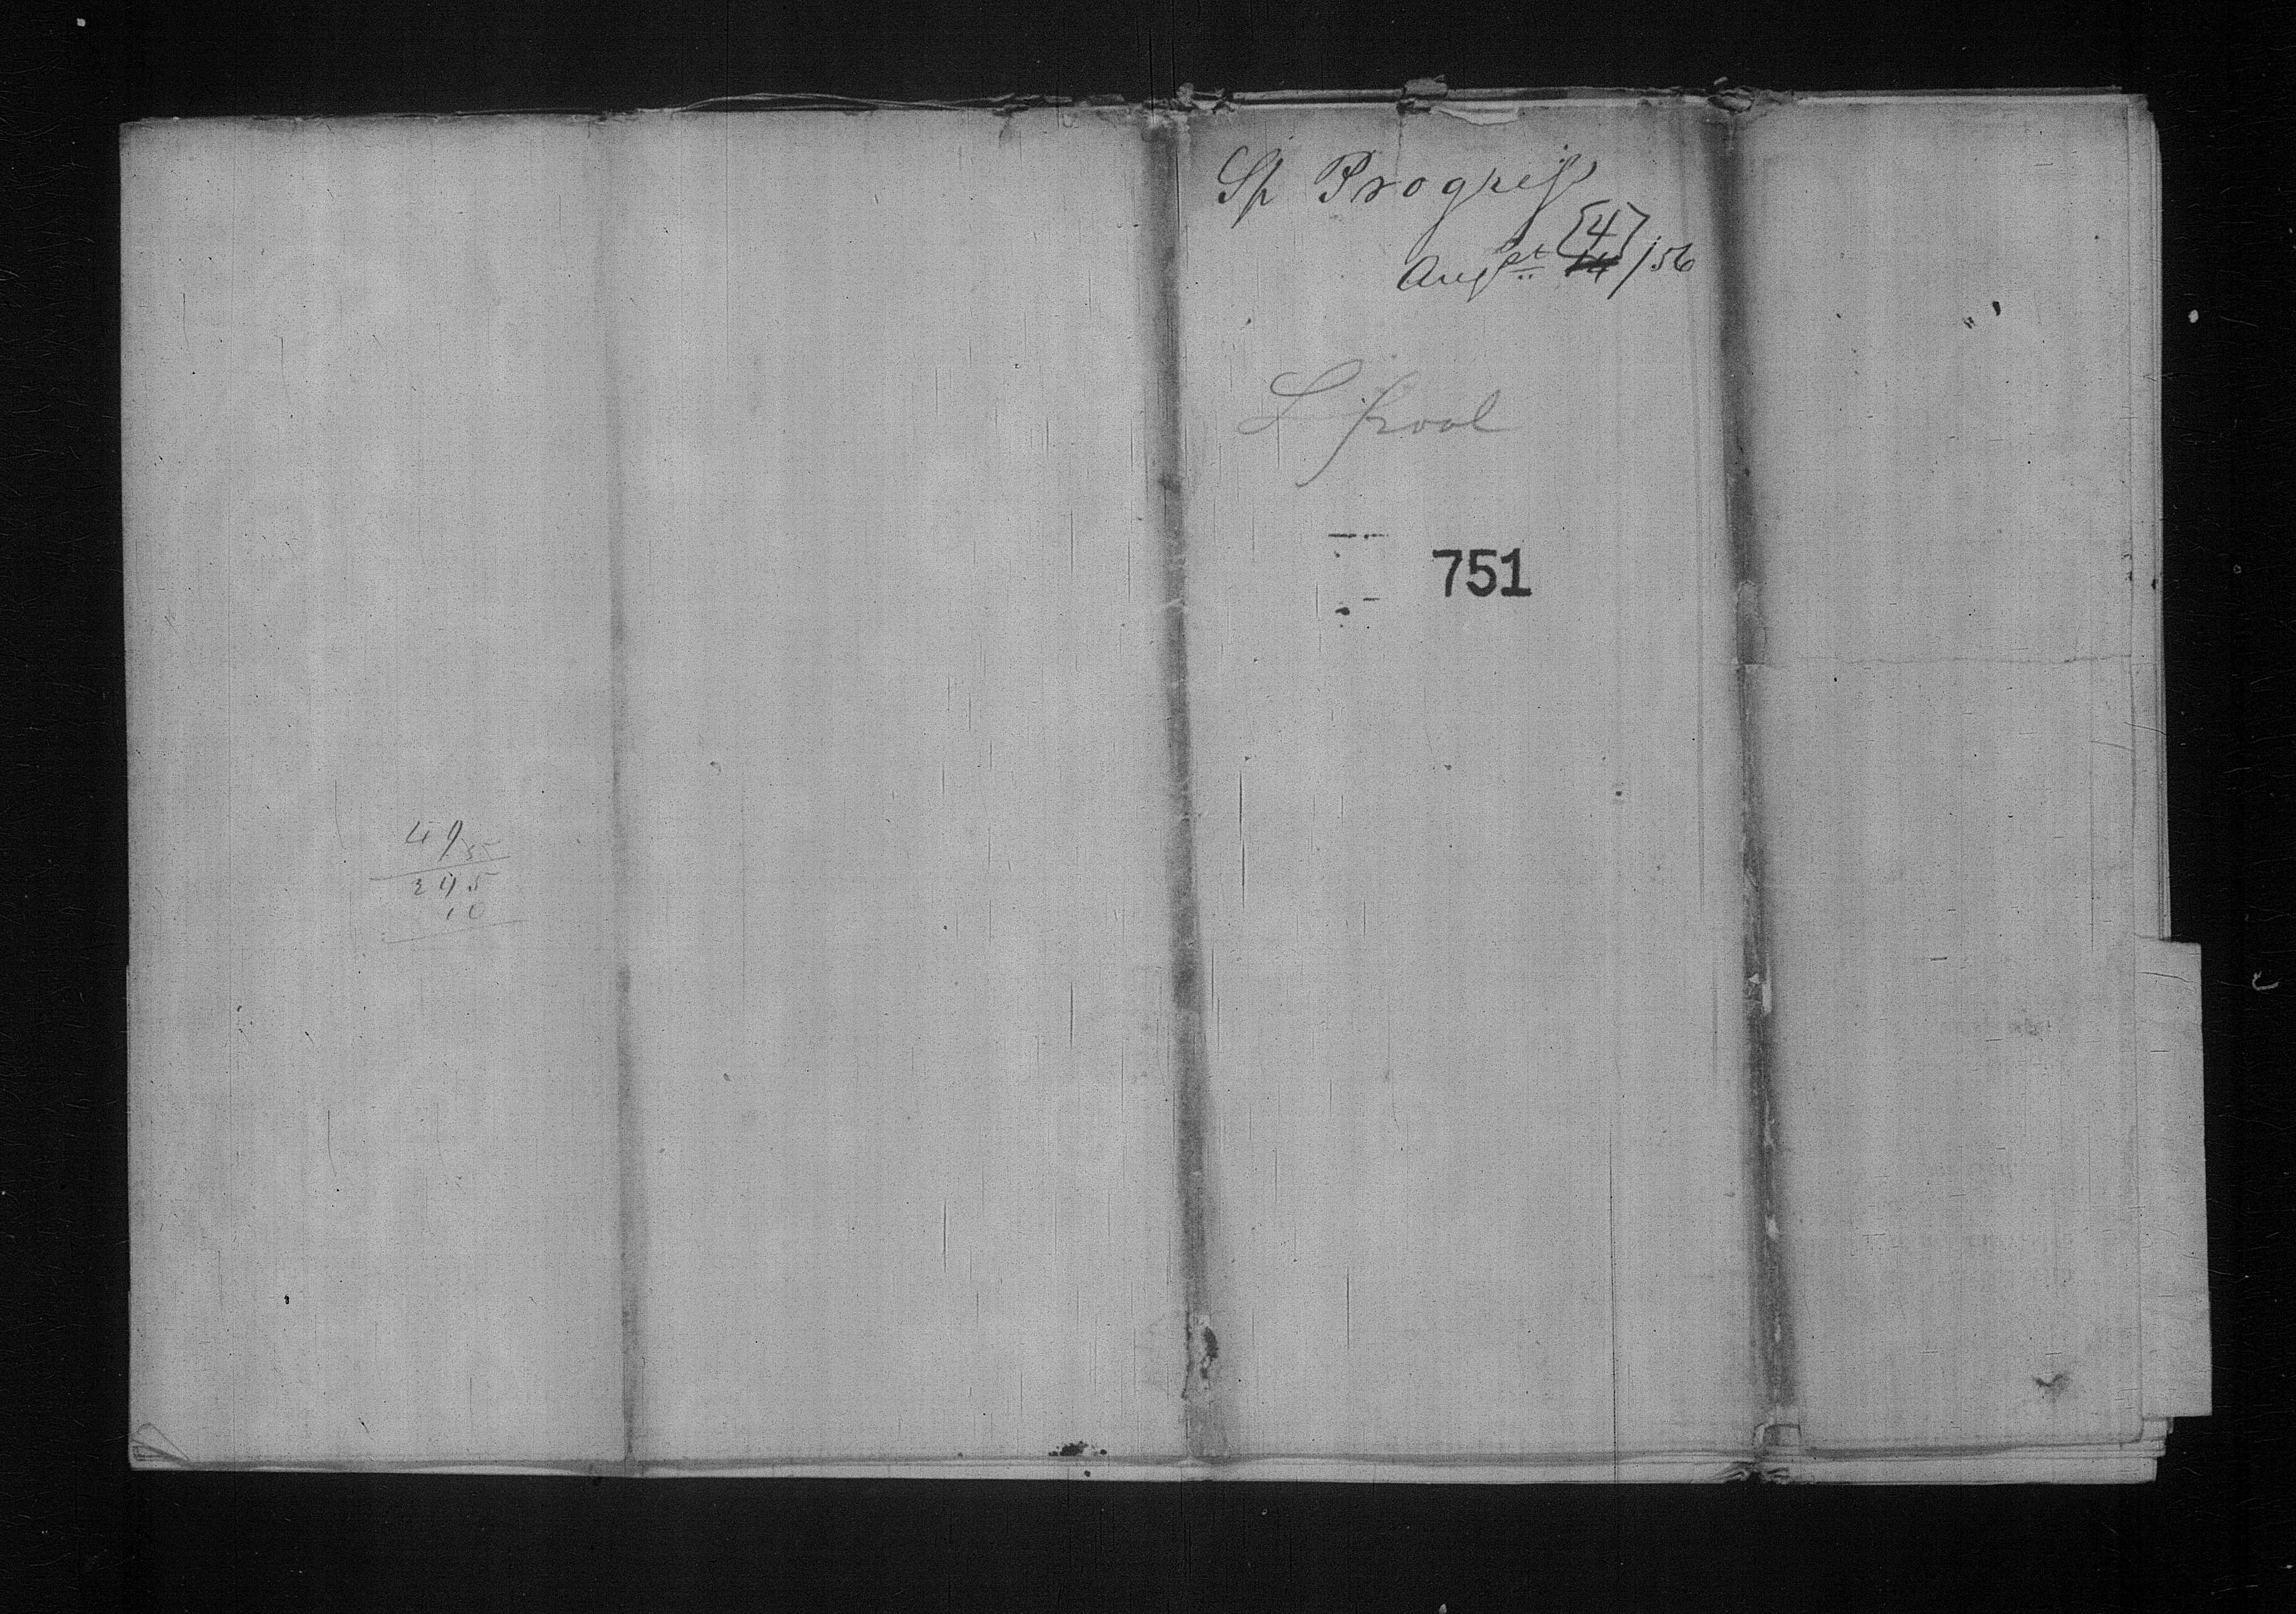 Sh Progress
Augst [4] 14/56
L pool
751
49
55
245
10